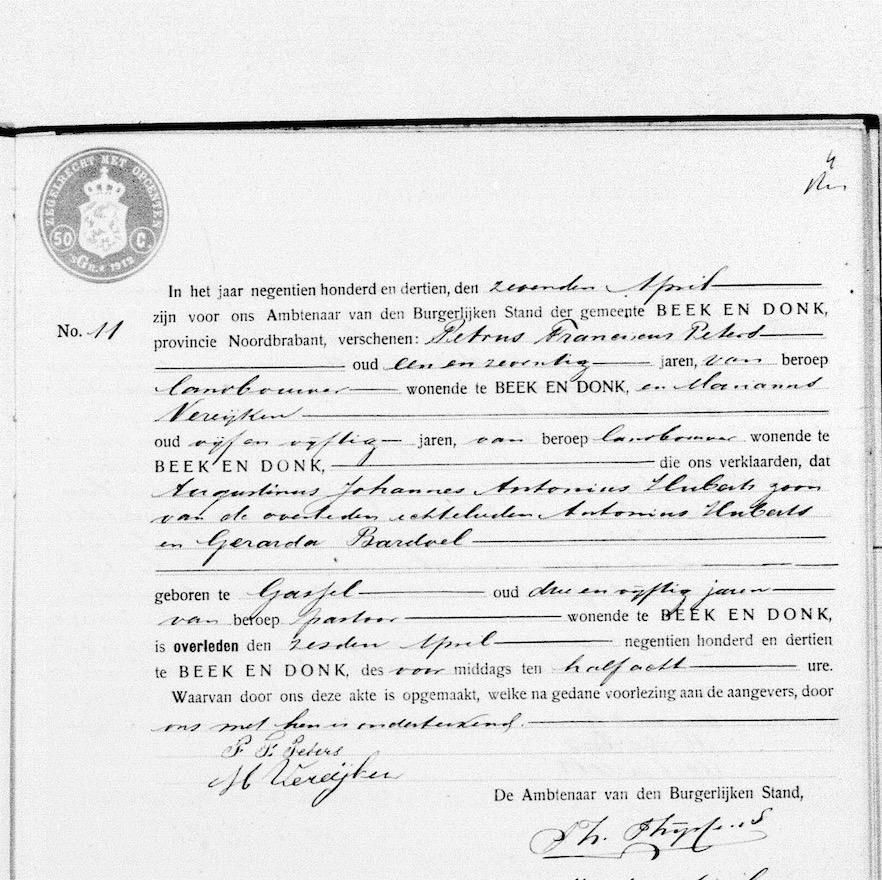 ZEGELRECHT MET OPCENTEN
50 C
'sGR. 1912
4
In het jaar negentien honderd en dertien, den zevenden April
zijn voor ons Ambtenaar van den Burgerlijken Stand der gemeente BEEK EN DONK,
No. 11
provincie Noordbrabant, verschenen: Petrus Franciscus Peters
oud een en zeventig jaren, van beroep
landbouwer wonende te BEEK EN DONK, en Marianus
Vereijken
oud vijf en vijftig jaren, van beroep landbouwer wonende te
BEEK EN DONK, die ons verklaarden, dat
Augustinus Johannes Antonius Huberts zoon
van de overleden echtelieden Antonius Huberts
en Gerarda Bardoel
geboren te Gassel oud drie en vijftig jaren
van beroep pastoor wonende te BEEK EN DONK,
is overleden den zesden April negentien honderd en dertien
te BEEK EN DONK, des voor middags ten half acht ure.
Waarvan door ons deze akte is opgemaakt, welke na gedane voorlezing aan de aangevers, door
ons met hen is onderteekend.
P. F. Peters
M Vereijken
De Ambtenaar van den Burgerlijken Stand,
Th. Thijssens